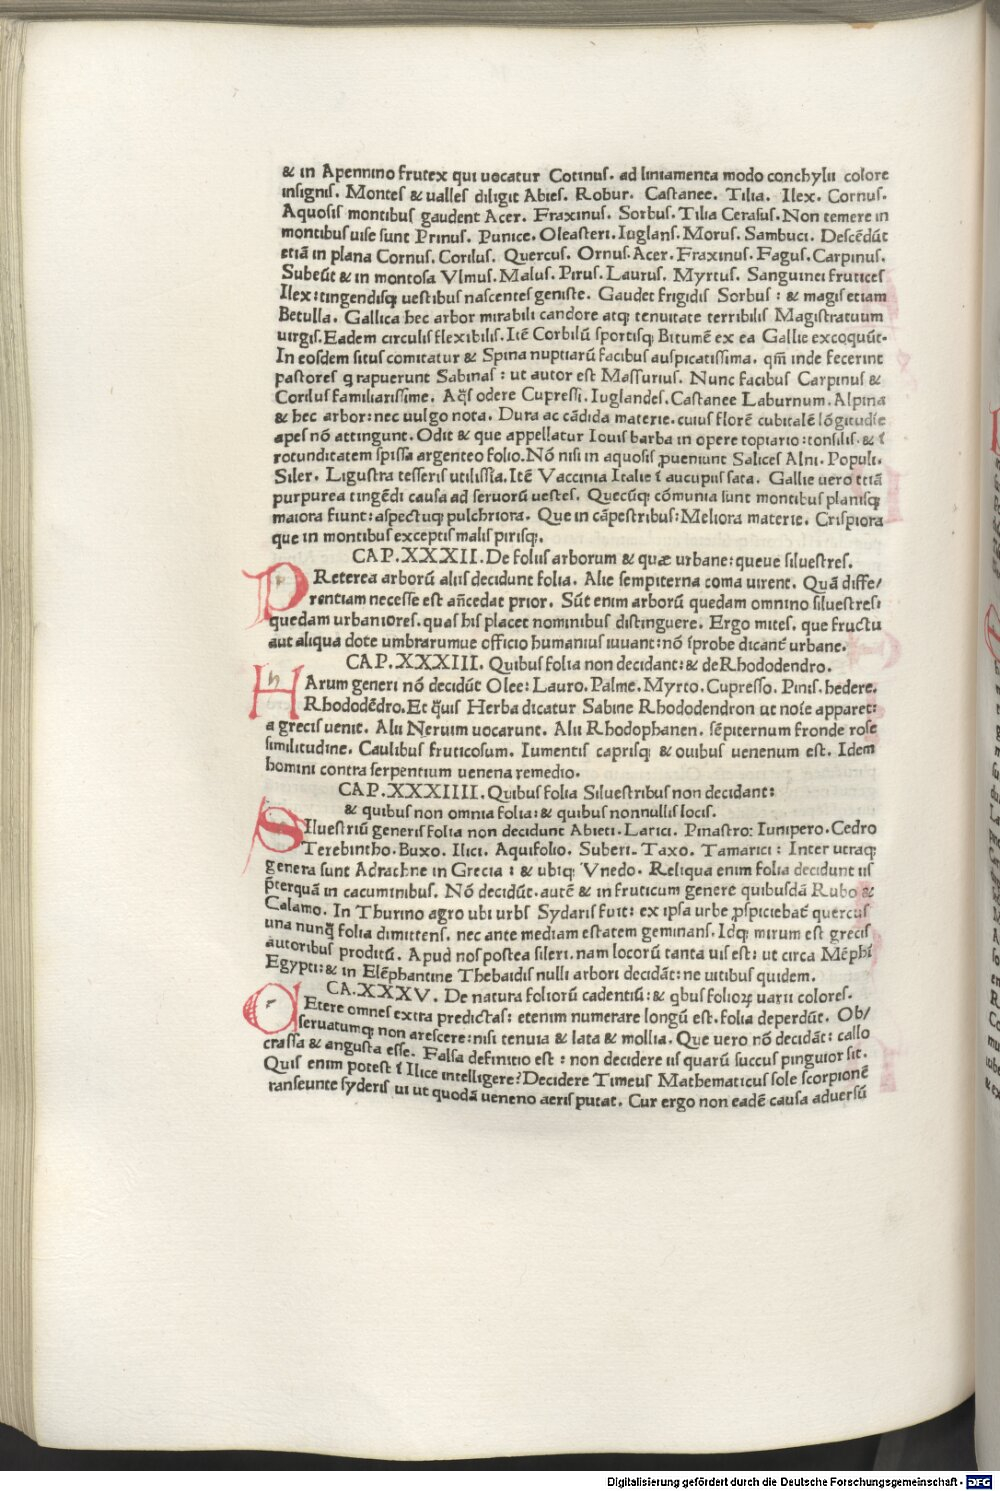 & in Apennino frutex qui uocatur Cotinus. ad liniamenta modo conchylii colore
insignis. Montes & ualles diligit Abies. Robur. Castanee. Tilia. Ilex. Cornus.
Aquosis montibus gaudent Acer. Fraxinus. Sorbus. Tilia Cerasus. Non temere in
montibus uise sunt Prinus. Punice. Oleasteri. Iuglans. Morus. Sambuci. Descēdūt
etiā in plana Cornus. Corilus. Quercus. Ornus. Acer. Fraxinus. Fagus. Carpinus.
Subeūt & in montosa Vlmus. Malus. Pirus. Laurus. Myrtus. Sanguinei frutices
Ilex: tingendisq; uestibus nascentes geniste. Gaudet frigidis Sorbus: & magis etiam
Betulla. Gallica hec arbor mirabili candore atq; tenuitate terribilis Magistratuum
uirgis. Eadem circulis flexibilis. Itē Corbilū sportisq; Bitumē ex ea Gallie excoquūt.
In eosdem situs comitatur & Spina nuptiarū facibus auspicatissima. qm̄ inde fecerint
pastores q rapuerunt Sabinas: ut autor est Massurius. Nunc facibus Carpinus &
Corilus familiarissime. Aq̄s odere Cupressi. Iuglandes. Castanee Laburnum. Alpina
& hec arbor: nec uulgo nota. Dura ac cādida materie. cuius florē cubitalē lōgitudīe
apes nō attingunt. Odit & que appellatur Iouis barba in opere topiario: tonsilis. & ī
rotunditatem spissa argenteo folio. Nō nisi in aquosis ꝓueniunt Salices Alni. Populi.
Siler. Ligustra tesseris utilissīa. Itē Vaccinia Italie ī aucupiis sata. Gallie uero etiā
purpurea tingēdi causa ad seruorū uestes. Quecūq; cōmunia sunt montibus planisq;
maiora fiunt: aspectuq; pulchriora. Que in cāpestribus: Meliora materie. Crispiora
que in montibus exceptis malis pirisq;.
CAP. XXXII. De foliis arborum & quæ urbane: queue siluestres.
PReterea arborū aliis decidunt folia. Alie sempiterna coma uirent. Quā diffe/
rentiam necesse est añcedat prior. Sūt enim arborū quedam omnino siluestres:
quedam urbaniores. quas his placet nominibus distinguere. Ergo mites. que fructu
aut aliqua dote umbrarumue officio humanius iuuant: nō īprobe dicant̄ urbane.
CAP. XXXIII. Quibus folia non decidant: & de Rhododendro.
HArum generi nō decidūt Olee: Lauro. Palme. Myrto. Cupresso. Pinis. hedere.
Rhododēdro. Et q̄uis Herba dicatur Sabine Rhododendron ut noīe apparet:
a grecis uenit. Alii Nerium uocarunt. Alii Rhodophanen. sēpiternum fronde rose
similitudine. Caulibus fruticosum. Iumentis caprisq; & ouibus uenenum est. Idem
homini contra serpentium uenena remedio.
CAP. XXXIIII. Quibus folia Siluestribus non decidant:
& quibus non omnia folia: & quibus nonnullis locis.
SIluestriū generis folia non decidunt Abieti. Larici. Pinastro: Iunipero. Cedro
Terebintho. Buxo. Ilici. Aquifolio. Suberi. Taxo. Tamarici: Inter utraq;
genera sunt Adrachne in Grecia: & ubiq; Vnedo. Reliqua enim folia decidunt iis
p̄terquā in cacuminibus. Nō decidūt. autē & in fruticum genere quibusdā Rubo &
Calamo. In Thurino agro ubi urbs Sydaris fuit: ex ipsa urbe ꝓspiciebat̄ quercus
una nunq̄ folia dimittens. nec ante mediam estatem geminans. Idq; mirum est grecis
autoribus proditū. Apud nos postea sileri. nam locorū tanta uis est: ut circa Mēphī
Egypti: & in Elēphantine Thebaidis nulli arbori decidāt: ne uitibus quidem.
CA. XXXV. De natura foliorū cadentiū: & qbus folioꝝ uarii colores.
CEtere omnes extra predictas: etenim numerare longū est. folia deperdūt. Ob/
seruatumq; non arescere: nisi tenuia & lata & mollia. Que uero nō decidāt: callo
crassa & angusta esse. Falsa definitio est: non decidere iis quarū succus pinguior sit.
Quis enim potest ī Ilice intelligere? Decidere Timeus Mathematicus sole scorpionē
transeunte syderis ui ut quodā ueneno aeris putat. Cur ergo non eadē causa aduersū
Digitalisierung gefördert durch die Deutsche Forschungsgemeinschaft - DFG